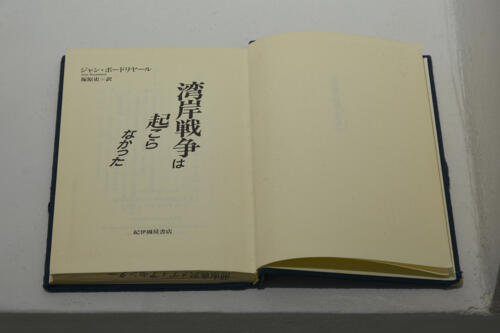 ジャン・ボードリヤール
塚原史=訳
湾岸戦争は
起こら
なかった
紀伊國屋書店